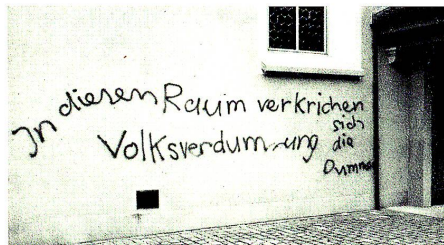 In diesen Raum verkrichen
sich
die
Dumme
Volksverdummung